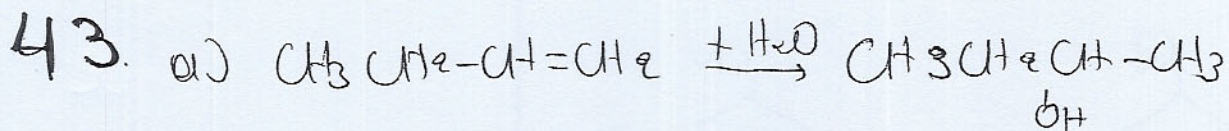 43. a) CH3CH2-CH=CH2 + H2O → CH3CH2CH-CH3
OH